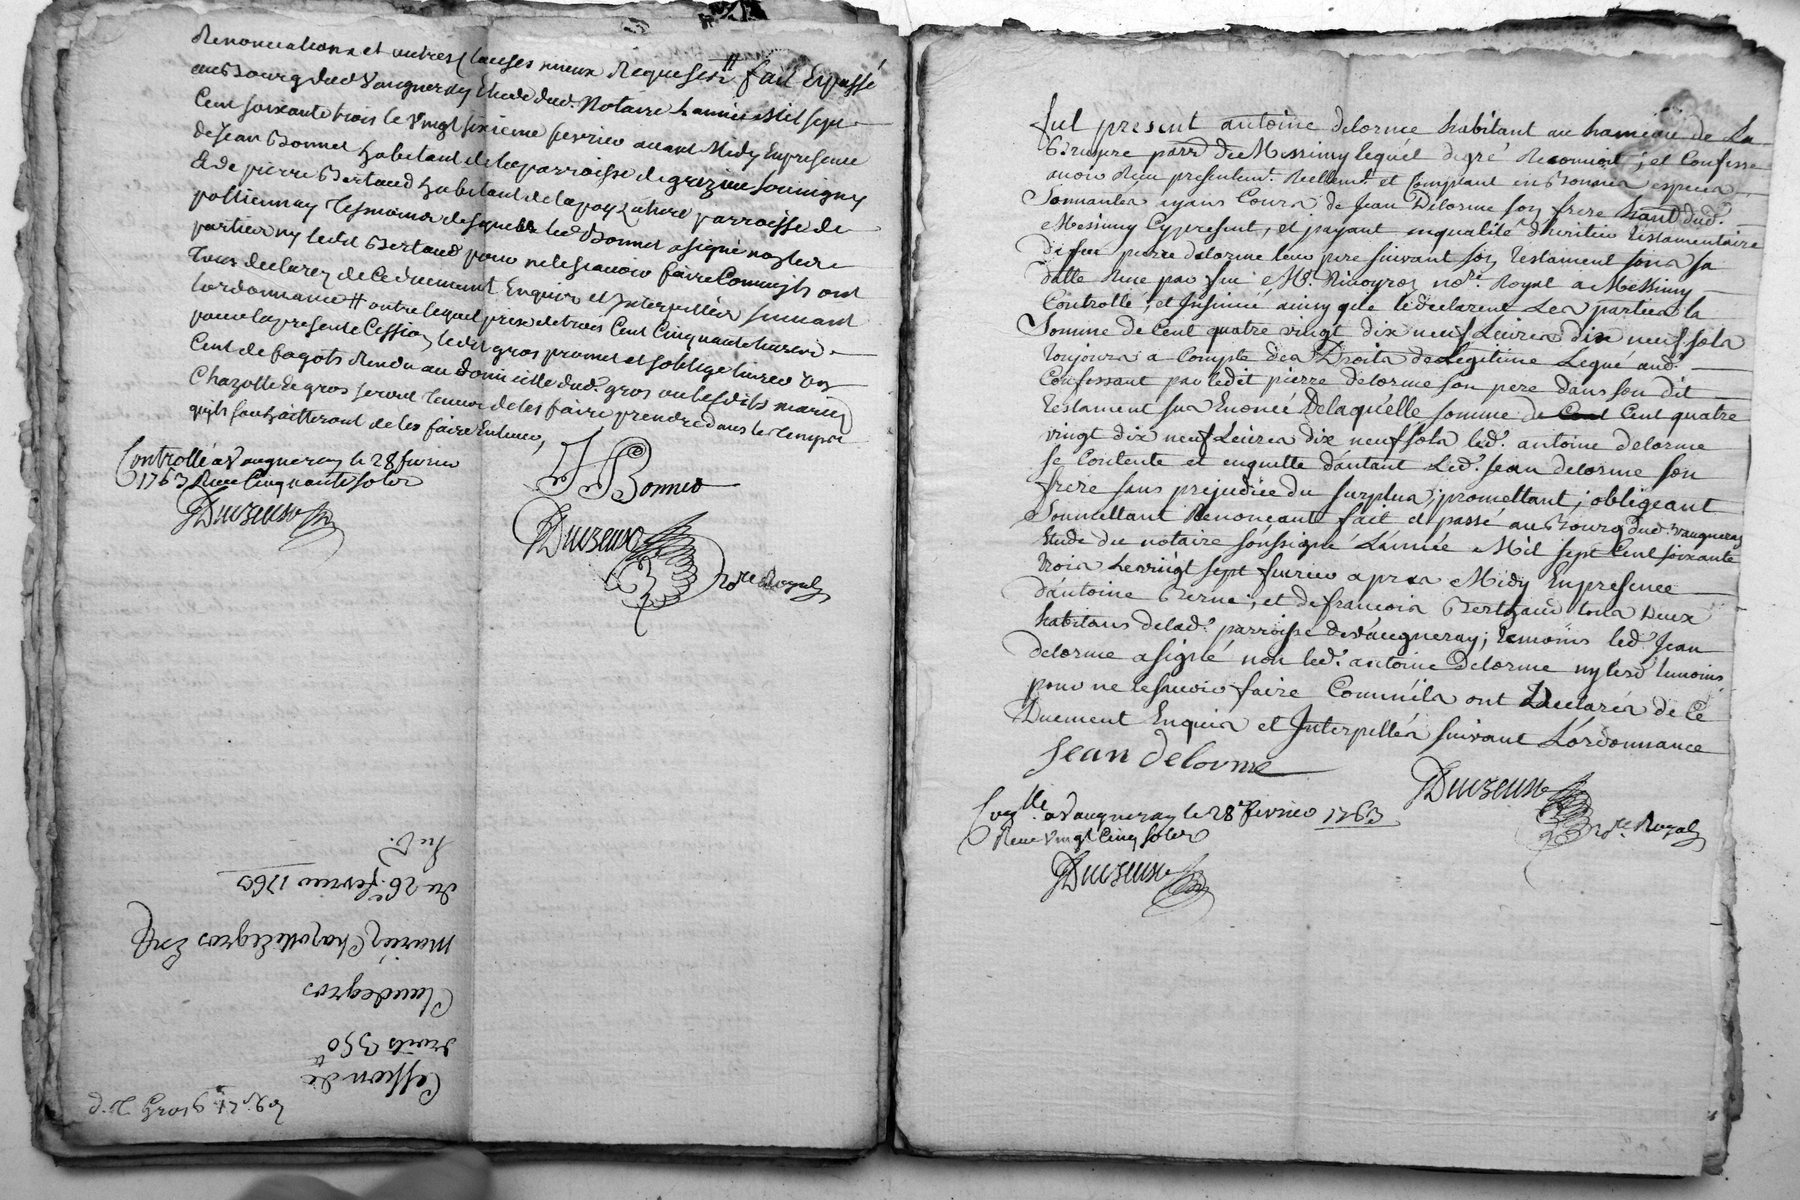 Renonciations et autres clauses mieux Requises # fait Et passé
au Bourg dud Vaugneray Etude dud. Notaire L'année Mil sept
Cent soixante trois le vingt sixieme fevrier avant Midy En presence
de Jean Bonnet habitant de la parroisse de grezieu
& de pierre Bertaud habitant de la parroisse de
pollionnay Temoins desquels led Bonnet a signé non les
parties ny ledit Bertaud pour ne le scavoir faire Comm'ils ont
Tous declarez de Ce duement Enquis et Interpellés suivant
lordonnance # outre lequel prix de trois Cent Cinquante livres
pour la presente Cession ledit gros promet et soblige livrer
Cent de fagots Rendu au domicille dud. gros ou lesdits mariés
Chazotte & gros seront tenus de les faire prendre dans le temps
qu'ils souhaitteront de les faire Enlever,
Controllé a Vaugneray le 28 fevrier
1763 Receu Cinquante sols
J Bonnet
Duczeux
no.re Royal
Cession de
droits 350
Claude gros
mariés Chazotte & gros
du 26.e fevrier 1763
Fut present antoine delorme habitant au hameau de La
Bruyere parr. de Messimy lequel de gré Reconnoit, et Confesse
avoir Reçu presentem.t Reellem.t et Comptant en Bonnes especes
Sonnantes ayans Cours de Jean Delorme son frere hant dud.
Messimy Cy present, et payant en qualité d'heritier testamentaire
de feu pierre delorme leur pere suivant son testament sous sa
datte Reçu par feu M.e no.re Royal a Messimy
Controllé, et Insinué ainsy que le declarent Les parties la
Somme de Cent quatre vingt dix neuf Livres dix neuf sols
toujours a Compte des Droits de Legitime Legué aud.
Confessant par ledit pierre delorme son pere dans son dit
testament sus Enoncé De laquelle somme de Cent Cent quatre
vingt dix neuf Livres dix neuf sols led. antoine delorme
se Contente et en quitte d'autant Led. Jean delorme son
frere sans prejudice du surplus, promettant, obligeant
Soumettant Renonçant fait et passé au Bourg dud. Vaugneray
Etude du notaire soussigné L'année Mil sept Cent soixante
trois Le vingt sept fevrier apres Midy En presence
d'antoine Berne, et de francois Berthaud tous Deux
habitans de lad. parroisse de Vaugneray; temoins led. Jean
delorme a signé non led. antoine Delorme ny lesd temoins
pour ne le scavoir faire Comm'ils ont Declarés de Ce
Duement Enquis et Interpellés suivant L'ordonnance
Jean delorme
Duczeux
no.re Royal
Con.llé a Vaugneray le 28 e fevrier 1763
Receu vingt Cinq sols
Duczeux